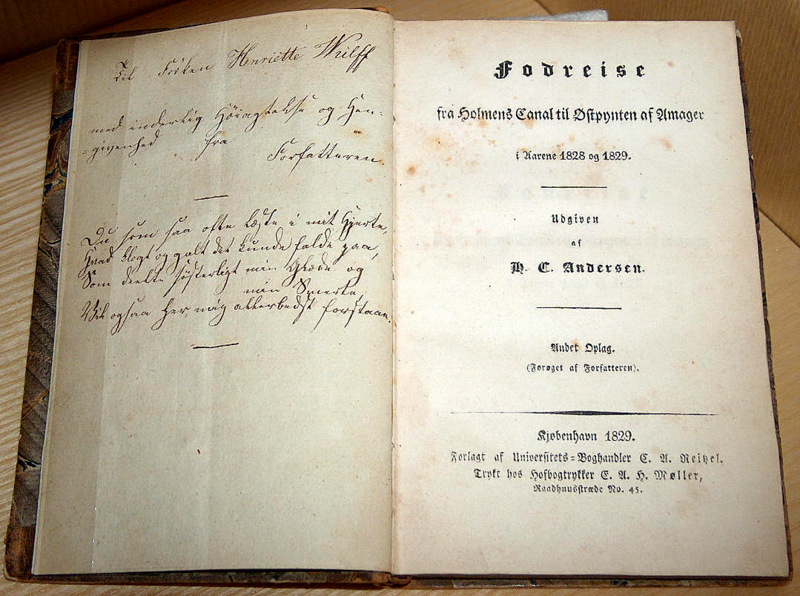 Til Frøken Henriette Wulff
med inderlig Høiagtelse og Hen-
=givenhed fra
Forfatteren.
Du som saa ofte læste i mit Hjerte,
Hvad klogt og galt det kunde falde paa,
Som deelte søsterligt min Glæde og
min Smerte
Vil ogsaa her mig allerbedst forstaae.
Fodreise
fra Holmens Canal til Østpynten af Amager
i Aarene 1828 og 1829.
Udgiven
af
H. C. Andersen.
Andet Oplag.
(Forøget af Forfatteren).
Kjøbenhavn 1829.
Forlagt af Universitets-Boghandler C. A. Reitzel.
Trykt hos Hofbogtrykker E. A. H. Møller,
Raadhuusstræde No. 45.